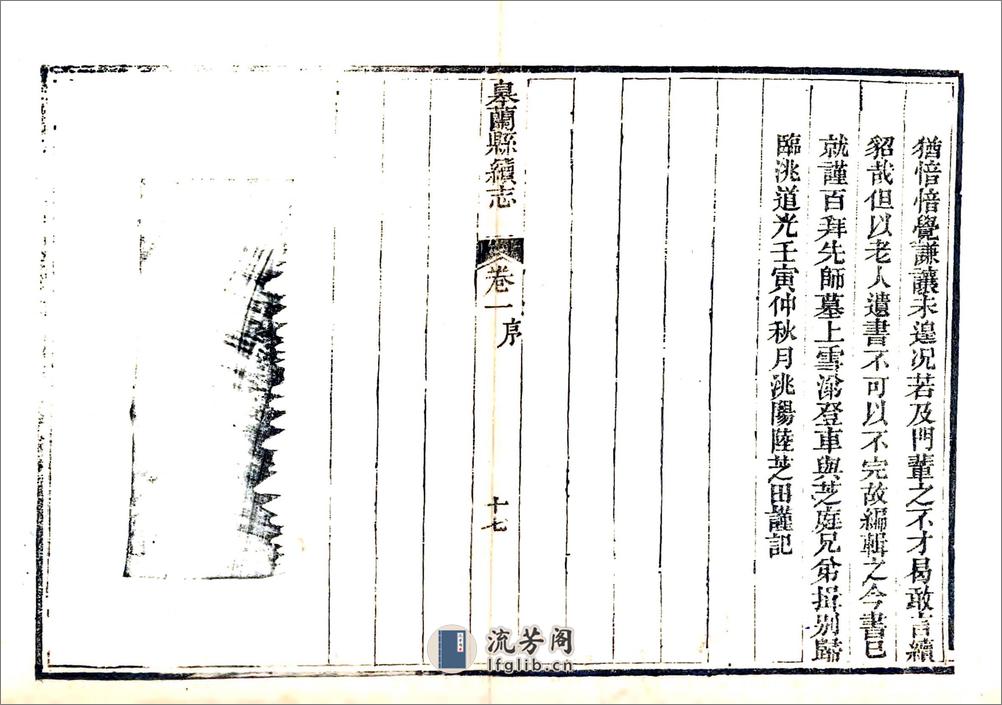 猶愔愔覺謙讓未遑况若及門輩之不才曷敢言續
貂哉但以老人遺書不可以不完故編輯之今書已
就謹百拜先師墓上雪涕登車與芝庭兄弟揖别歸
臨洮道光壬寅仲秋月洮陽陸芝田謹記
臯蘭縣續志
卷一
序
十七
流芳阁
lfglib.cn